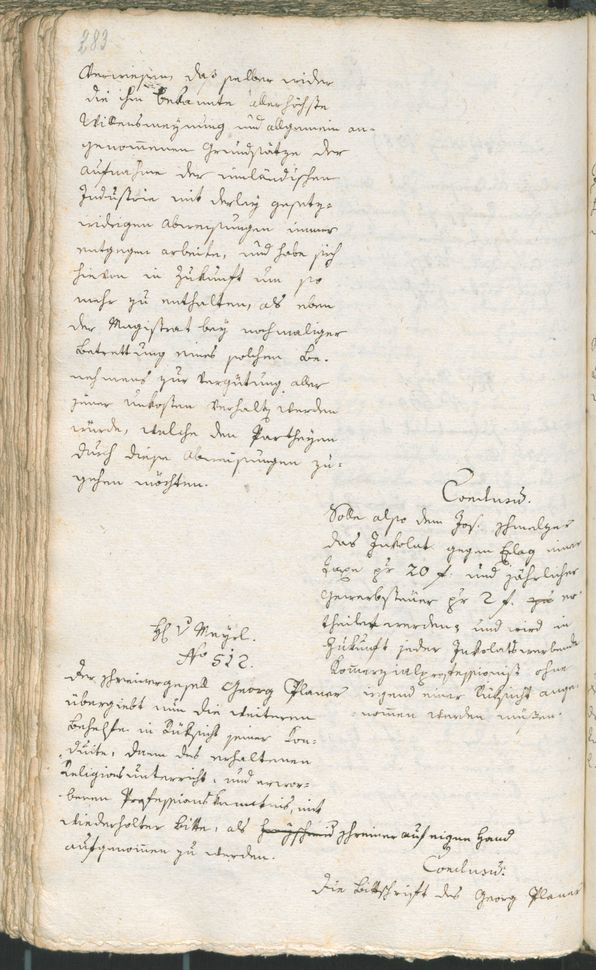 283
Verwiesen, daß selber wider
die ihm bekannte allerhöchste
Willensmeynung und allgemein an-
genommenen Grundsätze der
Aufnahme der innländischen
Industrie mit derley gesetz-
widrigen Abweisungen immer
entgegen arbeite, und habe sich
hievon in Zukunft um so
mehr zu enthalten, als eben
der Magistrat bey nochmaliger
Betrettung eines solchen Be-
nehmens zur Vergütung aller
jener Unkosten verhalten werden
würde, welche den Partheyen
durch diese Abweisungen zu-
gehen möchten.
Conclusum.
Solle also dem Jos. Schmalzer
das Inkolat gegen Erlag einer
Taxe pr 20 f. und jährlicher
Gewerbsteuer pr 2 f. er
theilet werden, und wird in
Zukunft jeder Inkolatswerbende
Kommerzialprofessionist ohne
irgend einer Rücksicht ange-
nommen werden müßen.
H v Mayrl.
No 512.
Der Schreinergesell Georg Planer
übergiebt nun die weiteren
Behelfe in Rücksicht seiner Kon-
duite, dann des erhaltenen
Religionsunterricht, und erwor-
benen Professionskenntniß, mit
wiederholter Bitte, als Schreiner auf eigne Hand
aufgenommen zu werden.
Conclusum:
Die Bittschrift des Georg Planer